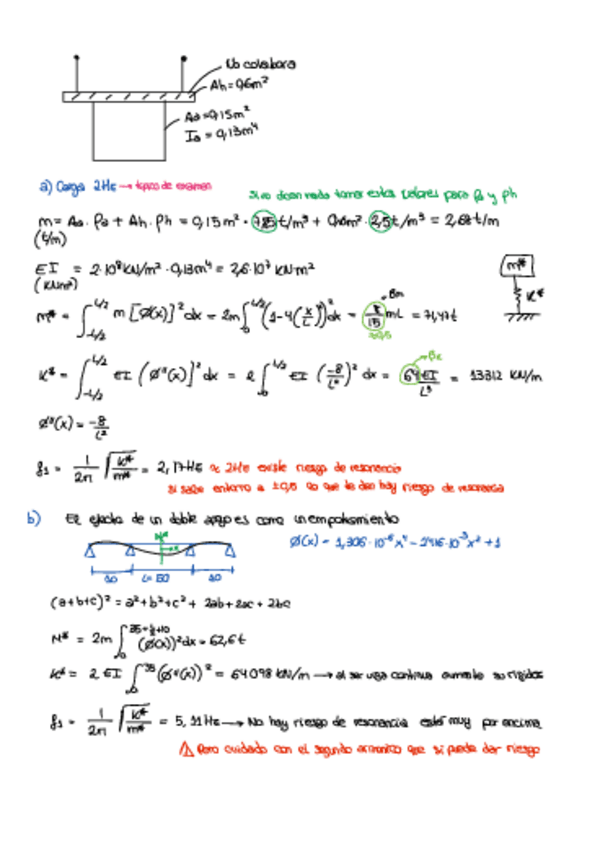 No colabora
Ah = 0,6m²
Aa = 0,15m²
Ia = 0,13m⁴
a) Carga 2Hz → típico de examen
Si no dicen nada tomar estos valores para ρa y ρh
m = Aa · ρa + Ah · ρh = 0,15m² · 7,85 t/m³ + 0,6m² · 2,5 t/m³ = 2,68 t/m
(t/m)
EI = 2·10⁸ kN/m² · 0,13m⁴ = 2,6·10⁷ kN·m²
(kNm²)
m*
k*
βm
m* = ∫_{-L/2}^{L/2} m [Ø(x)]² dx = 2m ∫_0^{L/2} (1-4(x/L)²)² dx = 8/15 mL = 71,47t
≈0,5
βk
k* = ∫_{-L/2}^{L/2} EI (Ø''(x))² dx = 2 ∫_0^{L/2} EI (-8/L²)² dx = 64EI/L³ = 13312 kN/m
Ø''(x) = -8/L²
f1 = 1/2π √(k*/m*) = 2,17Hz ≈ 2Hz existe riesgo de resonancia
si sale entorno a ±0,5 lo que te dan hay riesgo de resonancia
b) El efecto de un doble apoyo es como un empotramiento
Ø(x) = 1,306·10⁻⁶x⁴ - 2,416·10⁻³x² + 1
10 L=50 10
(a+b+c)² = a²+b²+c² + 2ab + 2ac + 2bc
M* = 2m ∫_0^{35=L/2+10} (Ø(x))² dx = 62,6t
k* = 2 EI ∫_0^{35} (Ø''(x))² = 64098 kN/m → al ser viga continua aumenta su rigidez
f1 = 1/2π √(k*/m*) = 5,11Hz → No hay riesgo de resonancia está muy por encima
⚠ Pero cuidado con el segundo armónico que si puede dar riesgo